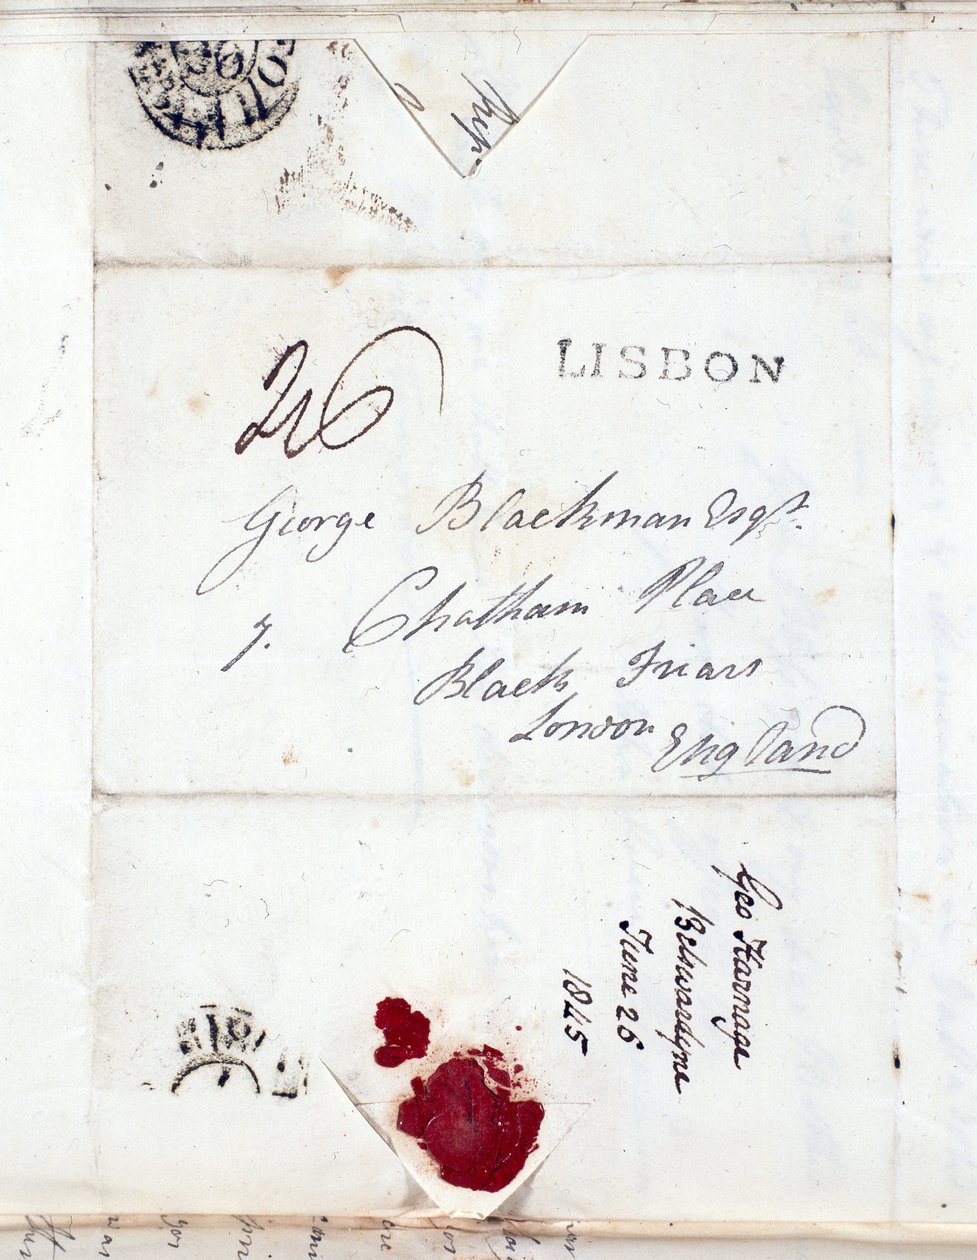 LISBON
2/6
George Blackman Esqr.
7. Chatham Place
Black Friars
London England
Geo Harnage
Belswardyne
June 26
1845